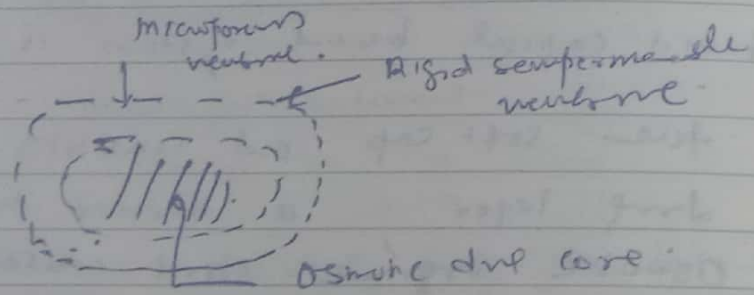 microporous
membrane.
Rigid semipermeable
membrane
Osmotic drug core.